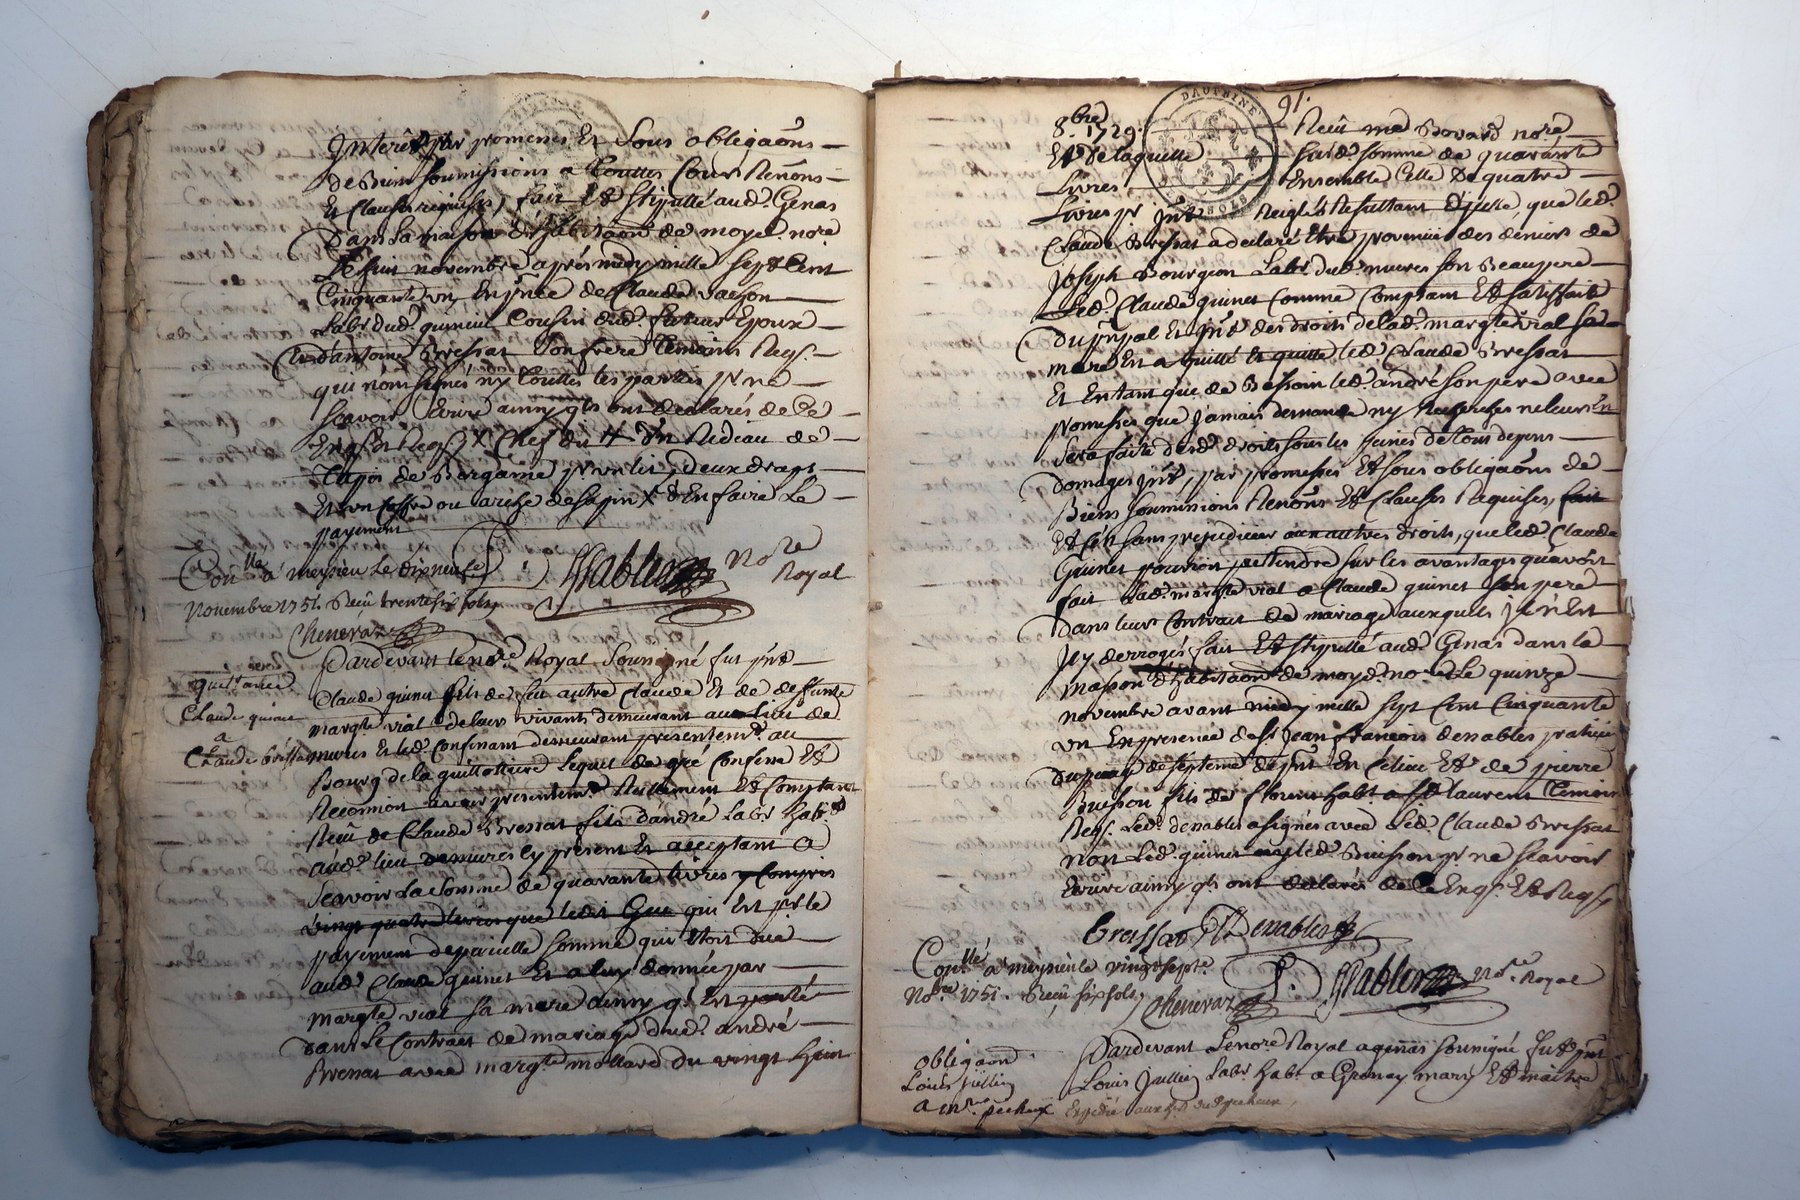 Interêt par promesses Et Sous obligaôns
de Biens soumissions a Touttes Cours Renôns
Et Clauses requises, fait Et stipullé aud. Genas
Dans la maison d'habitaôn de moyd. nore
Le huit novembre après midy mille sept Cent
Cinquante un En pnce de Claude
Labr dud. Cousin dud. futur Epoux
Et d'antoine Bressat son frere temoins Reqs.
qui n'ont signés ny Touttes les parties pr ne
Scavoir Ecrire ainsy qls ont declarés de Ce
Enqs Et Reqs X Chef du Lit Un Rideau de
Tapis de Bergame pr un lit, deux draps
Et un Coffre ou arche de Sapin X d'En faire Le
payement
Conllé a meysieu Le dixneufe
Novembre 1751. Reçû trente six sols
Chenevaz
Nore
Royal
Pardevant Le nore Royal Soussigné fut pnt
quittance
Claude quinet
a
Claude Bressat
Claude quinet fils de feu autre Claude Et de deffunte
margte vial de leur vivant demeurant au lieu de
mures Et led. Confinant demeurant presentemt au
Bourg de la guillottiere Lequel de gré Confesse Et
Reconnoit avoir presentemt Reellement Et Comptant
Reçû de Claude Bressat fils d'andré Labr habt
aud. lieu de mures Cy present Et acceptant a
Scavoir La Somme de quarante livres y Compris
vingt quatre livres que ledit Gui qui Est pr le
payement de pareille Somme qui Etoit düe
aud. Claude quinet Et a luy donnée par
margte vial sa mere ainsy ql Est porté
Dans Le Contrat de mariage dud. andré
Bressat avec margte mollard du vingt huit
91.
DAUPHINE
SOLS
8bre 1729. Reçû me Bovard nore
Et De laquelle susd. Somme de quarante
Livres Ensemble Celle de quatre
Livres pr Int Reiglés Resultant d'jcelle, que led.
Claude Bressat a declaré Etre provenüe des deniers de
Joseph Bourgeon Labr dud. mures son Beaupere
Led. Claude quinet Comme Comptant Et Satisfait
Du ppal Et Int des droits de lad. margte vial sa
mere En a quitté Et quitte led. Claude Bressat
Et En tant que de Besoin led. andré son pere avec
promesses que Jamais demande ny Recherches ne leur En
Sera faite desd. droits sous les peines de Tous depens
domages Int, par promesses Et sous obligaôns de
Biens Soumissions Renôns Et Clauses Requises, fait
Et Ce sans prejudicier aux autres droits, que led. Claude
Quinet pourroit pretendre sur les avantages qu'avoit
fait Lad. margte vial a Claude quinet son pere
dans leur Contrat de mariage auxquels Jl n'Est
Jcy derrogés fait Et Stipullé aud. Genas dans la
maison d'habitaôn de moyd. nore Le quinze
novembre avant midy mille sept Cent Cinquante
un En presence de sr Jean francois denables pratitien
de septeme Et de pierre
Buisson fils de habt a St laurent Temoins
Reqs. Led. denables a signés avec Led. Claude Bressat
non Led. quinet ny led. Buisson pr ne scavoir
Ecrire ainsy qls ont declarés de Ce Enqs. Et Reqs
Breissat Denables
Conllé a meysieu le vingt sept
Nobre 1751. Reçû six sols
Chenevaz
Nore Royal
obligaôn
Louis Jullien
a mr. pecheux
Pardevant Le nore Royal a genas soussigné fut pnt
Louis Jullien Labr habt a Grenay mary Et maître
Expedié aud. sr pecheux